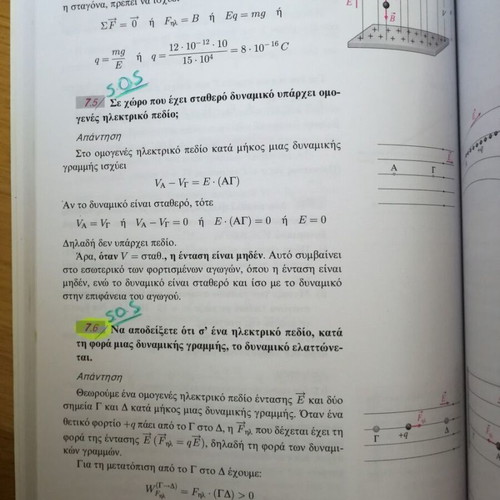 η σταγόνα, πρέπει να
ΣF⃗ = 0⃗ ή F_ηλ = B ή Eq = mg ή
q = mg/E ή q = 12 · 10⁻¹² · 10 / 15 · 10⁴ = 8 · 10⁻¹⁶ C
SOS
7.5 Σε χώρο που έχει σταθερό δυναμικό υπάρχει ομο-
γενές ηλεκτρικό πεδίο;
Απάντηση
Στο ομογενές ηλεκτρικό πεδίο κατά μήκος μιας δυναμικής
γραμμής ισχύει
V_A − V_Γ = E · (ΑΓ)
Αν το δυναμικό είναι σταθερό, τότε
V_A = V_Γ ή V_A − V_Γ = 0 ή E · (ΑΓ) = 0 ή E = 0
Δηλαδή δεν υπάρχει πεδίο.
Άρα, όταν V = σταθ., η ένταση είναι μηδέν. Αυτό συμβαίνει
στο εσωτερικό των φορτισμένων αγωγών, όπου η ένταση είναι
μηδέν, ενώ το δυναμικό είναι σταθερό και ίσο με το δυναμικό
στην επιφάνεια του αγωγού.
SOS
7.6 Να αποδείξετε ότι σ' ένα ηλεκτρικό πεδίο, κατά
τη φορά μιας δυναμικής γραμμής, το δυναμικό ελαττώνε-
ται.
Απάντηση
Θεωρούμε ένα ομογενές ηλεκτρικό πεδίο έντασης E⃗ και δύο
σημεία Γ και Δ κατά μήκος μιας δυναμικής γραμμής. Όταν ένα
θετικό φορτίο +q πάει από το Γ στο Δ, η F⃗_ηλ που δέχεται έχει τη
φορά της έντασης E⃗ (F⃗_ηλ = qE⃗), δηλαδή τη φορά των δυναμι-
κών γραμμών.
Για τη μετατόπιση από το Γ στο Δ έχουμε:
W_{F_ηλ}^{(Γ→Δ)} = F_ηλ · (ΓΔ) > 0
E
B⃗
A Γ
Γ +q Δ
F⃗_ηλ